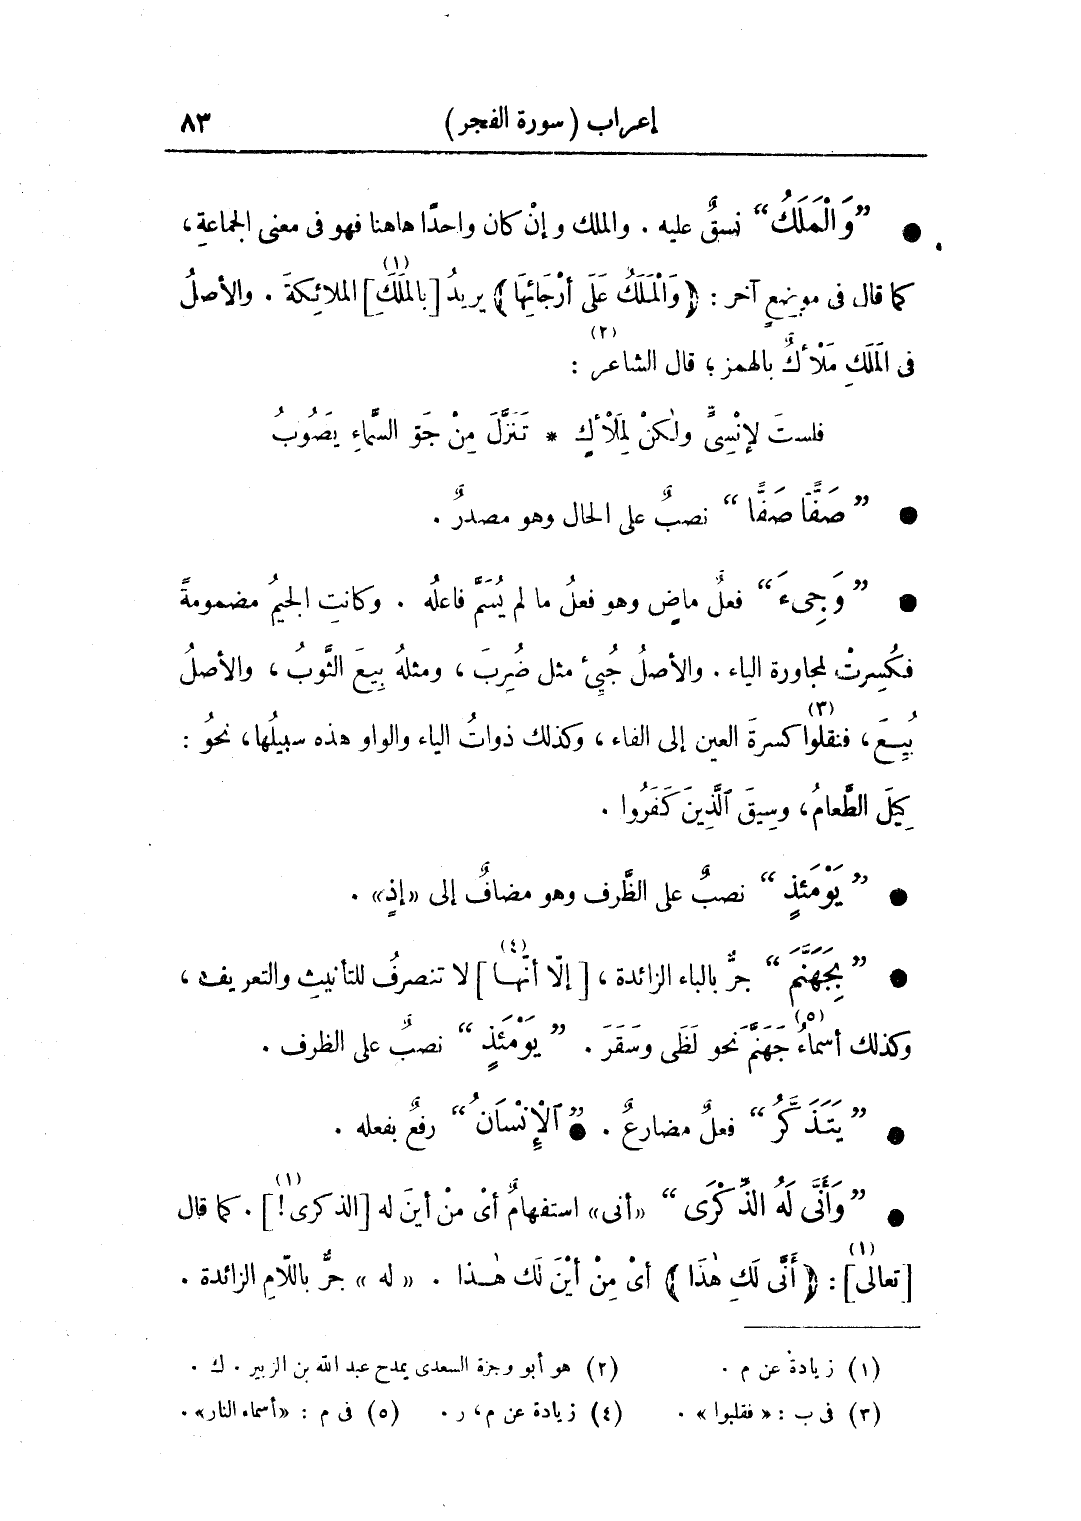 إعراب (سورة الفجر) ٨٣
● ”وَالْمَلَكُ“ نسقٌ عليه . والملك وإنْ كان واحدًا هاهنا فهو فى معنى الجماعةِ ،
كما قال فى موضعٍ آخر : ﴿وَالْمَلَكُ عَلَى أَرْجَائِهَا﴾ يريدُ [بالملَكِ](١) الملائكةَ . والأصلُ
فى المَلَكِ مَلْأَكٌ بالهمز ؛ قال الشاعر(٢) :
فلستَ لإنْسِىٍّ ولٰكنْ لِمَلْأَكٍ * تَنَزَّلَ مِنْ جَوِّ السَّماءِ يَصُوبُ
● ”صَفًّا صَفًّا“ نصبٌ على الحال وهو مصدرٌ .
● ”وَجِىءَ“ فعلٌ ماضٍ وهو فعلُ ما لم يُسَمَّ فاعلُه . وكانتِ الجيمُ مضمومةً
فكُسِرتْ لمجاورة الياء . والأصلُ جُيِئَ مثل ضُرِبَ ، ومثلهُ بِيعَ الثَّوبُ ، والأصلُ
بُيِعَ ، فنقلوا(٣) كسرةَ العين إلى الفاء ، وكذلك ذواتُ الياء والواو هذه سبيلُها، نحوُ :
كِيلَ الطَّعامُ، وسِيقَ ٱلَّذِينَ كَفَرُوا .
● ”يَوْمَئِذٍ“ نصبٌ على الظَّرف وهو مضافٌ إلى «إذٍ» .
● ”بِجَهَنَّمَ“ جرٌّ بالباء الزائدة ، [إلّا أنّها](٤) لا تنصرفُ للتأنيثِ والتعريف ،
وكذلك أسماءُ جَهَنَّمَ(٥) نحو لَظَى وسَقَرَ . ”يَوْمَئِذٍ“ نصبٌ على الظرف .
● ”يَتَذَكَّرُ“ فعلٌ مضارعٌ . ● ”ٱلْإِنْسَانُ“ رفعٌ بفعله .
● ”وَأَنَّى لَهُ الذِّكْرَى“ «أنى» استفهامٌ أىْ منْ أينَ له [الذكرى!](١) . كما قال
[تعالى](١) : ﴿أَنَّى لَكِ هٰذَا﴾ أىْ مِنْ أيْنَ لَك هٰذا . «له» جرٌّ باللّامِ الزائدة .
(١) زيادة عن م . (٢) هو أبو وجزة السعدى يمدح عبد الله بن الزبير . ك .
(٣) فى ب : «فقلبوا» . (٤) زيادة عن م، ر . (٥) فى م : «أسماء النار» .